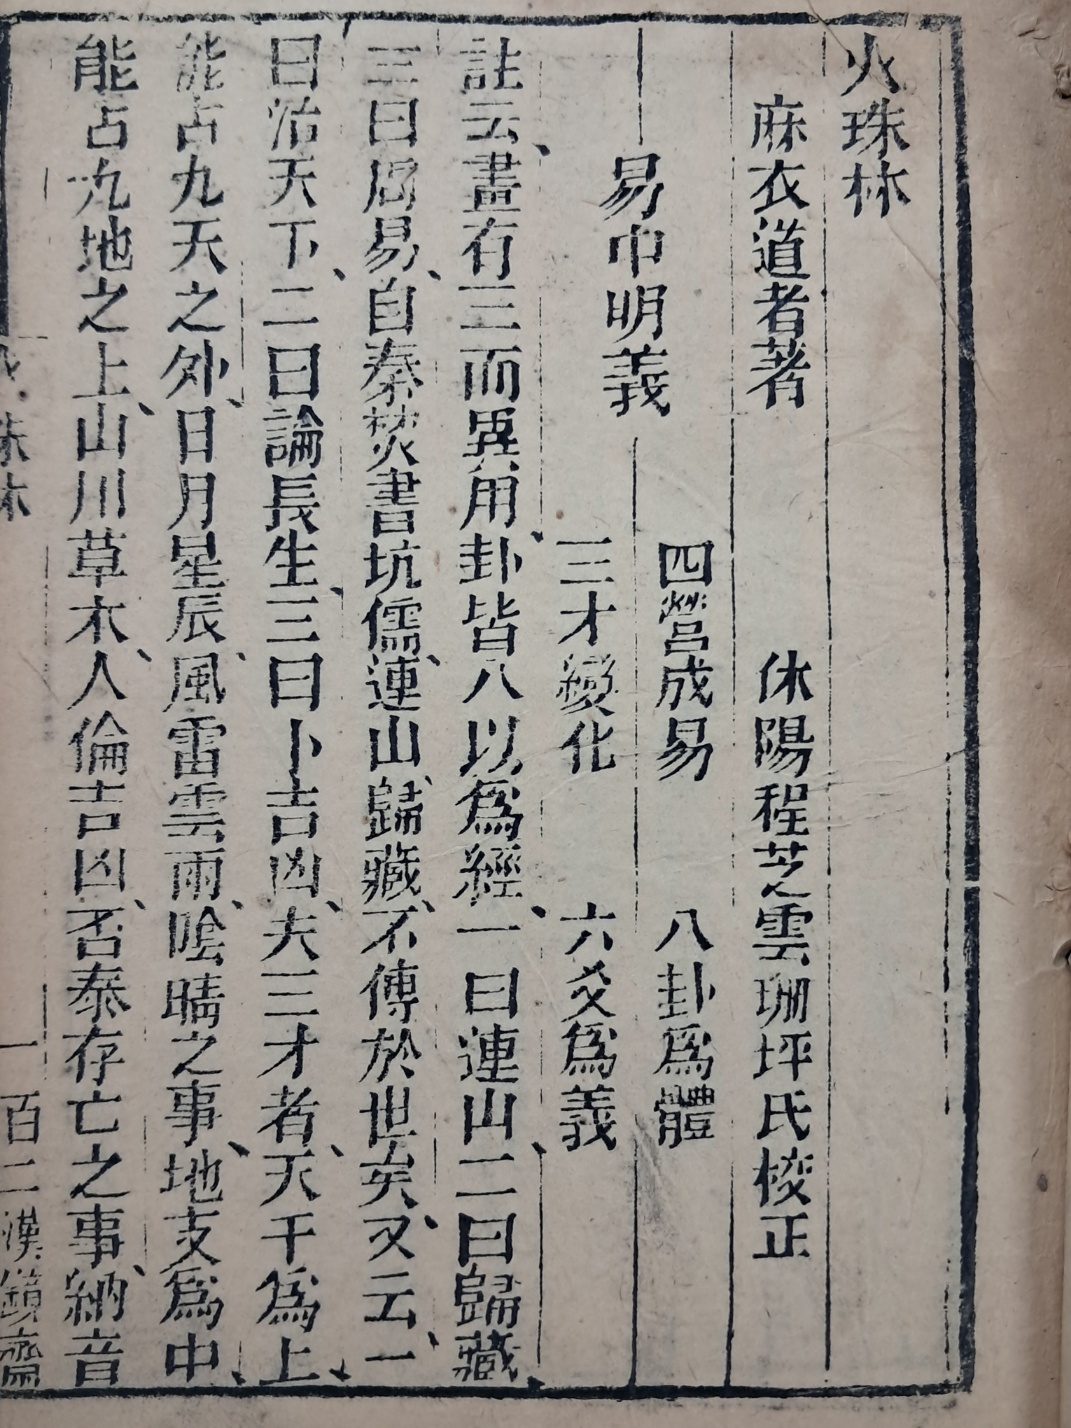 火珠林
麻衣道者著 休陽程芝雲珊坪氏校正
易中明義
四營成易 八卦爲體
三才變化 六爻爲義
註云、畫有三而異用、卦皆八以爲經、一曰連山、二曰歸藏、
三曰周易、自秦焚書坑儒、連山、歸藏、不傳於世矣、又云、一
曰治天下、二曰論長生、三曰卜吉凶、夫三才者、天干爲上、
能占九天之外、日月星辰、風雷雲雨、陰晴之事、地支爲中、
能占九地之上、山川草木、人倫吉凶、否泰存亡之事、納音
火珠林 一 百二漢鏡齋